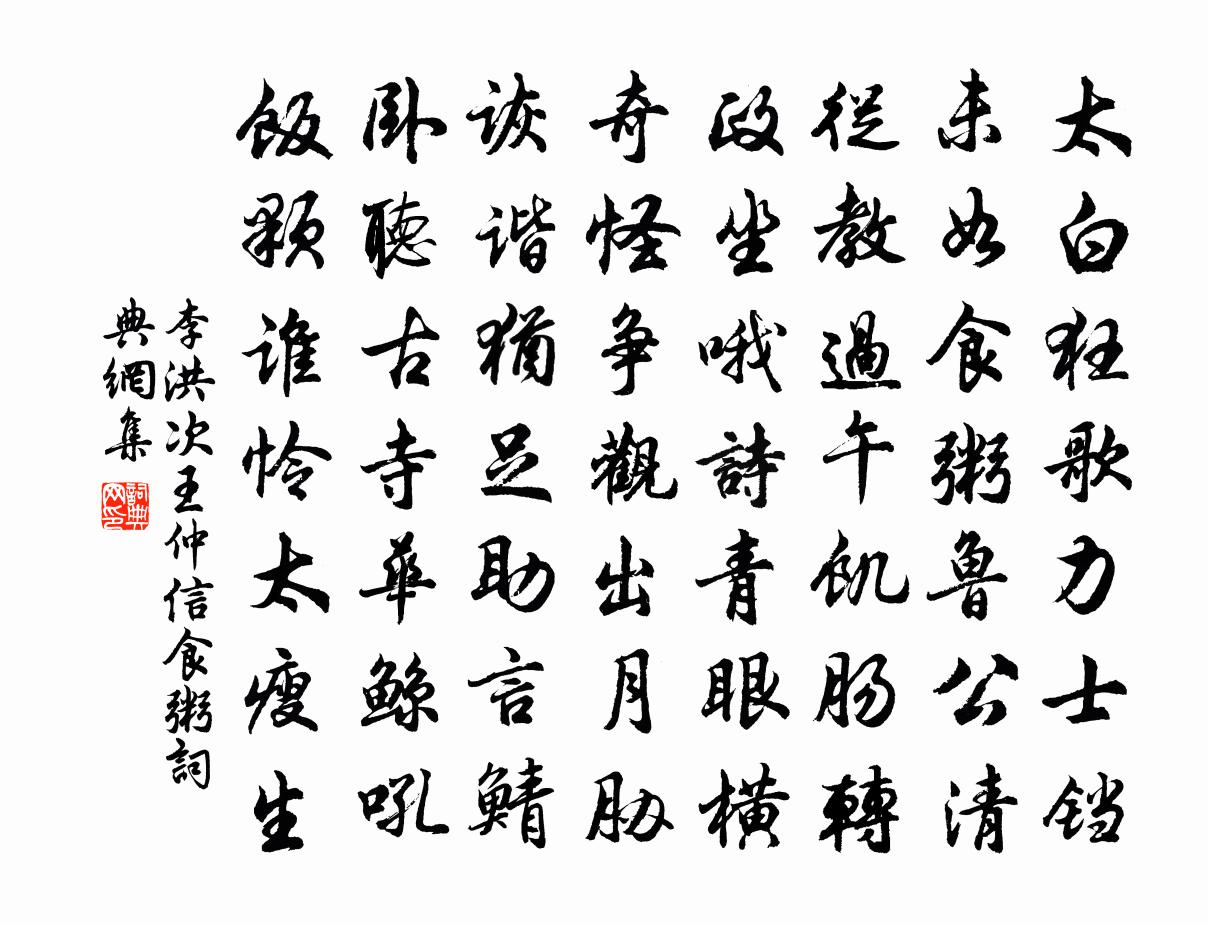 太白狂歌力士铛
未如食粥鲁公清
從教過午飢腸轉
政坐哦詩青眼橫
奇怪爭觀出月胁
詼谐猶足助言鯖
卧聽古寺華鲸吼
飯顆谁怜太瘦生
李洪次王仲信食粥詞
典網集
詞典网印